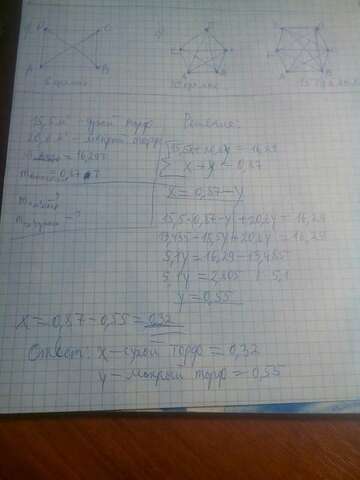 D C
A B
15,5 м³ - сухой торф
20,6 м³ - мокрый торф
= 16,29т
= 0,87 т
= ?
Решение:
15,5x + 20,6y = 16,29
x + y = 0,87
x = 0,87 - y
15,5 · 0,87 - y + 20,6y = 16,29
13,485 - 15,5y + 20,6y = 16,29
5,1y = 16,29 - 13,485
5,1y = 2,805 : 5,1
y = 0,55
x = 0,87 - 0,55 = 0,32
Ответ: x - сухой торф = 0,32
y - мокрый торф = 0,55